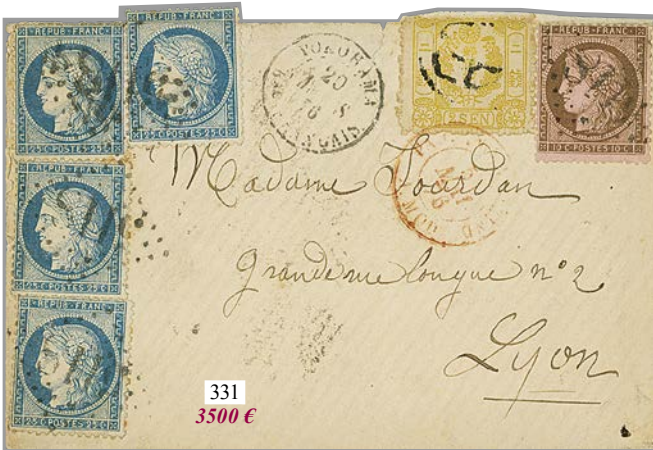 REPUB·FRANC
25 C·POSTES·25 C
REPUB·FRANC
25 C·POSTES·25 C
YOKOHAMA
Bau FRANÇAIS
2 SEN
REPUB·FRANC
10 C·POSTES·10 C
Madame Jourdan
REPUB·FRANC
25 C·POSTES·25 C
Grande rue longue n° 2
Lyon
REPUB·FRANC
25 C·POSTES·25 C
331
3500 €